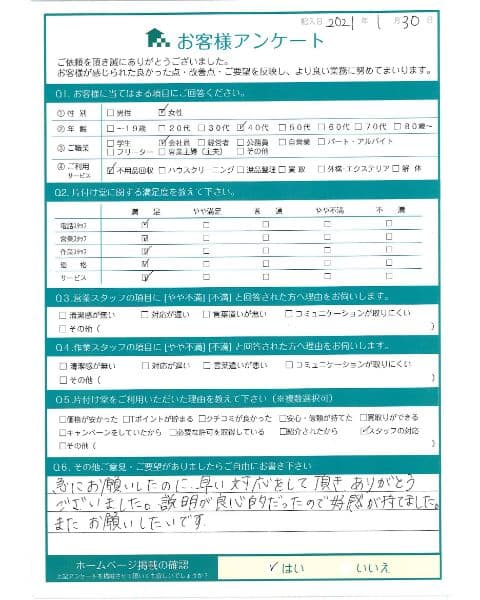 記入日 2021 年 1 月 30 日
お客様アンケート
ご依頼を頂き誠にありがとうございました。
お客様が感じられた良かった点・改善点・ご要望を反映し、より良い業務に努めてまいります。
Q1. お客様に当てはまる項目にご回答ください。
①性 別 □男性 ☑女性
②年 齢 □〜19歳 □20代 □30代 ☑40代 □50代 □60代 □70代 □80歳〜
③ご職業 □学生 ☑会社員 □経営者 □公務員 □自営業 □パート・アルバイト
□フリーター □専業主婦(主夫) □その他
④ご利用サービス ☑不用品回収 □ハウスクリーニング □遺品整理 □買取 □外構・エクステリア □解体
Q2. 片付け堂に関する満足度を教えて下さい。
満足 やや満足 普通 やや不満 不満
電話スタッフ ☑ □ □ □ □
営業スタッフ ☑ □ □ □ □
作業スタッフ ☑ □ □ □ □
価格 ☑ □ □ □ □
サービス ☑ □ □ □ □
Q3. 営業スタッフの項目に [やや不満] [不満] と回答された方へ理由をお伺いします。
□清潔感が無い □対応が遅い □言葉遣いが悪い □コミュニケーションが取りにくい
□その他( )
Q4. 作業スタッフの項目に [やや不満] [不満] と回答された方へ理由をお伺いします。
□清潔感が無い □対応が遅い □言葉遣いが悪い □コミュニケーションが取りにくい
□その他( )
Q5. 片付け堂をご利用いただいた理由を教えて下さい(※複数選択可)
□価格が安かった □Tポイントが貯まる □クチコミが良かった □安心・信頼が持てた □買取りができる
□キャンペーンをしていたから □必要な許可を取得している □紹介されたから ☑スタッフの対応
□その他( )
Q6. その他ご意見・ご要望がありましたらご自由にお書き下さい
急にお願いしたのに、早い対応をして頂き ありがとう
ございました。説明が良心的だったので好感が持てました。
また お願いしたいです。
ホームページ掲載の確認 ✓はい いいえ
上記アンケートを掲載させて頂いても宜しいでしょうか?